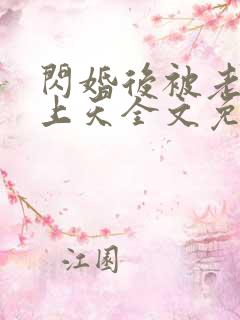 閃婚後被老
上天全文免
江園